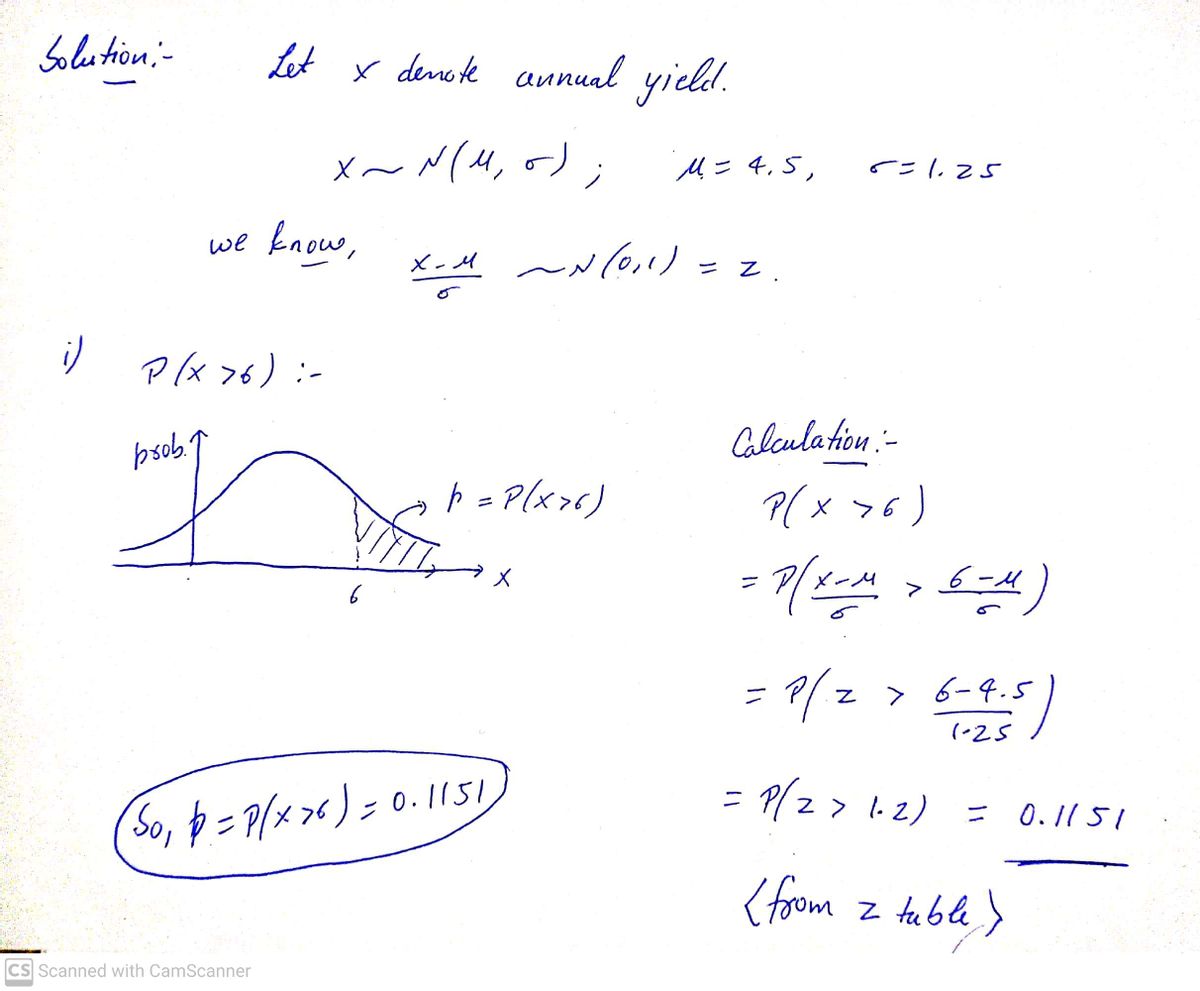 Solution:-
Let x denote annual yield.
x ~ N(μ, σ) ; μ = 4.5, σ = 1.25
we know, (x-μ)/σ ~ N(0,1) = z.
i) P(x >6) :-
prob.
p = P(x>6)
6
x
So, p = P(x>6) = 0.1151
Calculation:-
P( x >6 )
= P( (x-μ)/σ > (6-μ)/σ )
= P( z > (6-4.5)/1.25 )
= P( z > 1.2) = 0.1151
{from z table}
CS Scanned with CamScanner